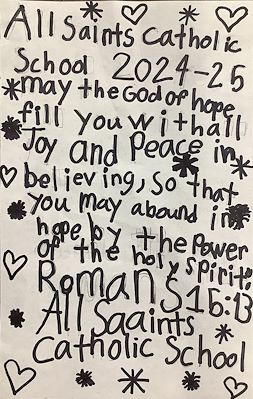 All Saints Catholic
School 2024-25
may the God of hope
fill you with all
Joy and Peace in
believing, so that
you may abound in
hope by the Power
of the holy spirit!
Romans 15:13
All Saaints
Catholic School